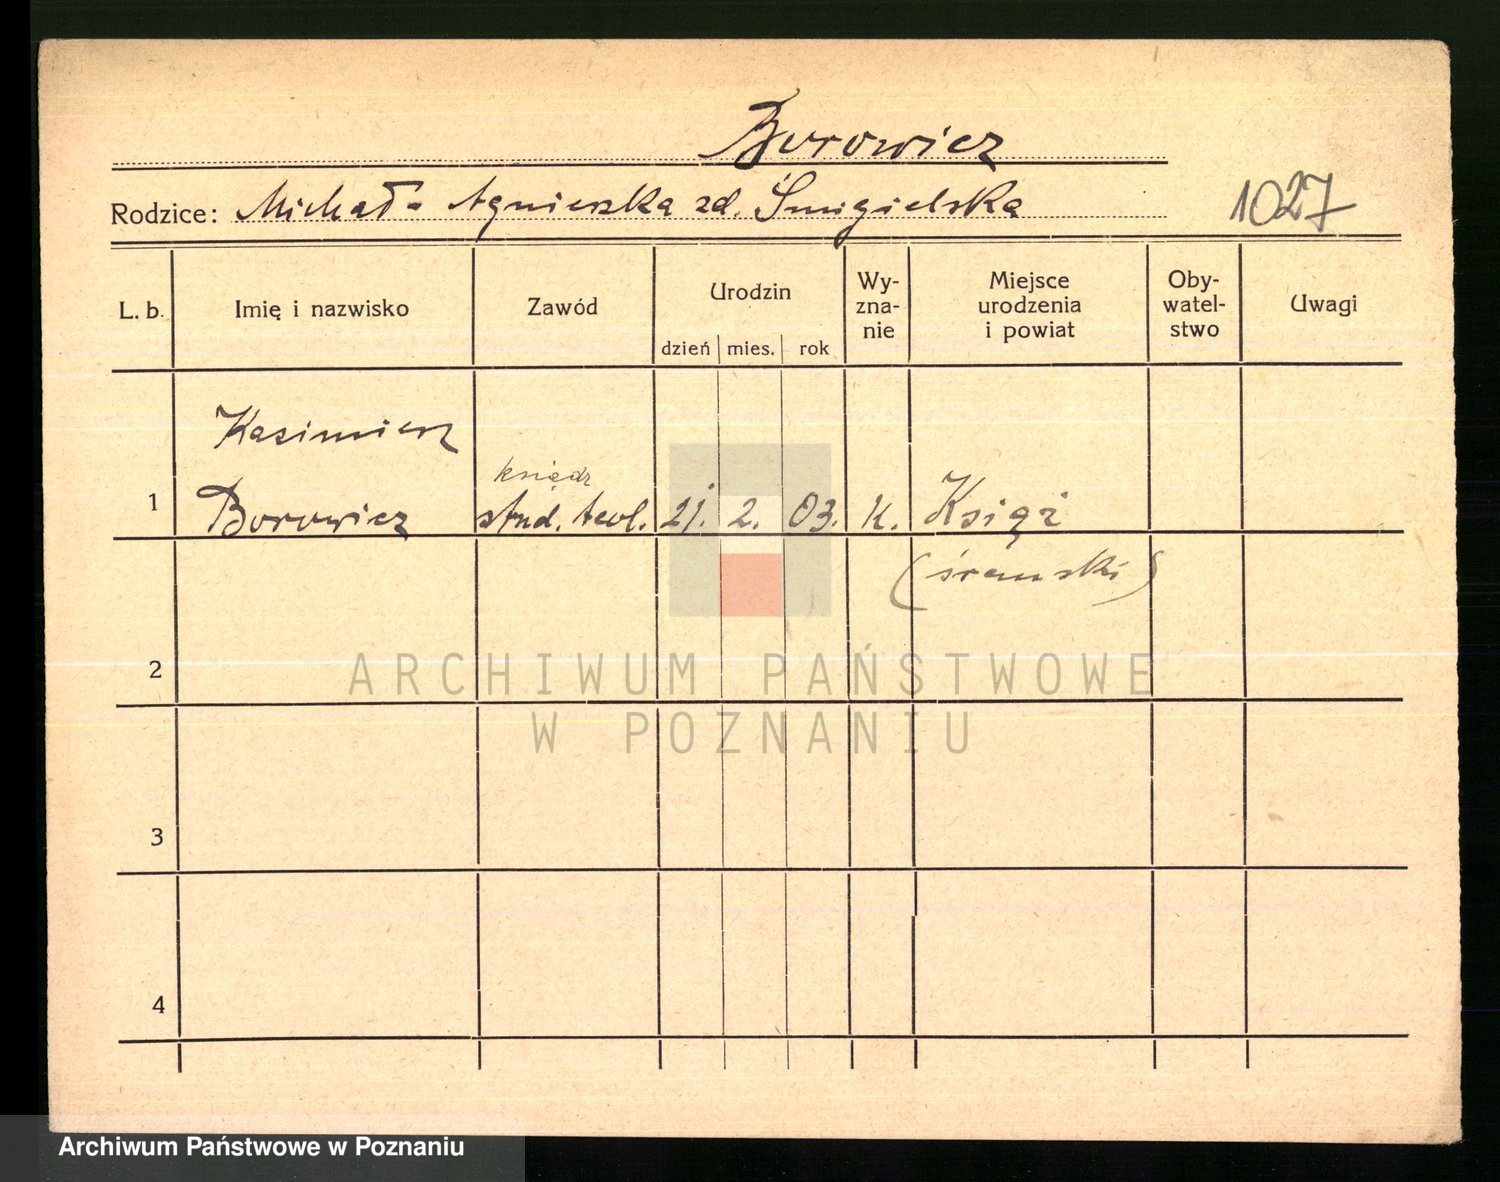 Borowicz
Rodzice: Michał - Agnieszka zd. Śmigielska
1027
L. b. Imię i nazwisko Zawód Urodzin Wy- Miejsce Oby- Uwagi
zna- urodzenia watel-
nie i powiat stwo
dzień mies. rok
Kazimierz
ksiądz
1 Borowicz stud. teol. 21. 2. 03. K. Książ
(śremski)
2
ARCHIWUM PAŃSTWOWE
W POZNANIU
3
4
Archiwum Państwowe w Poznaniu